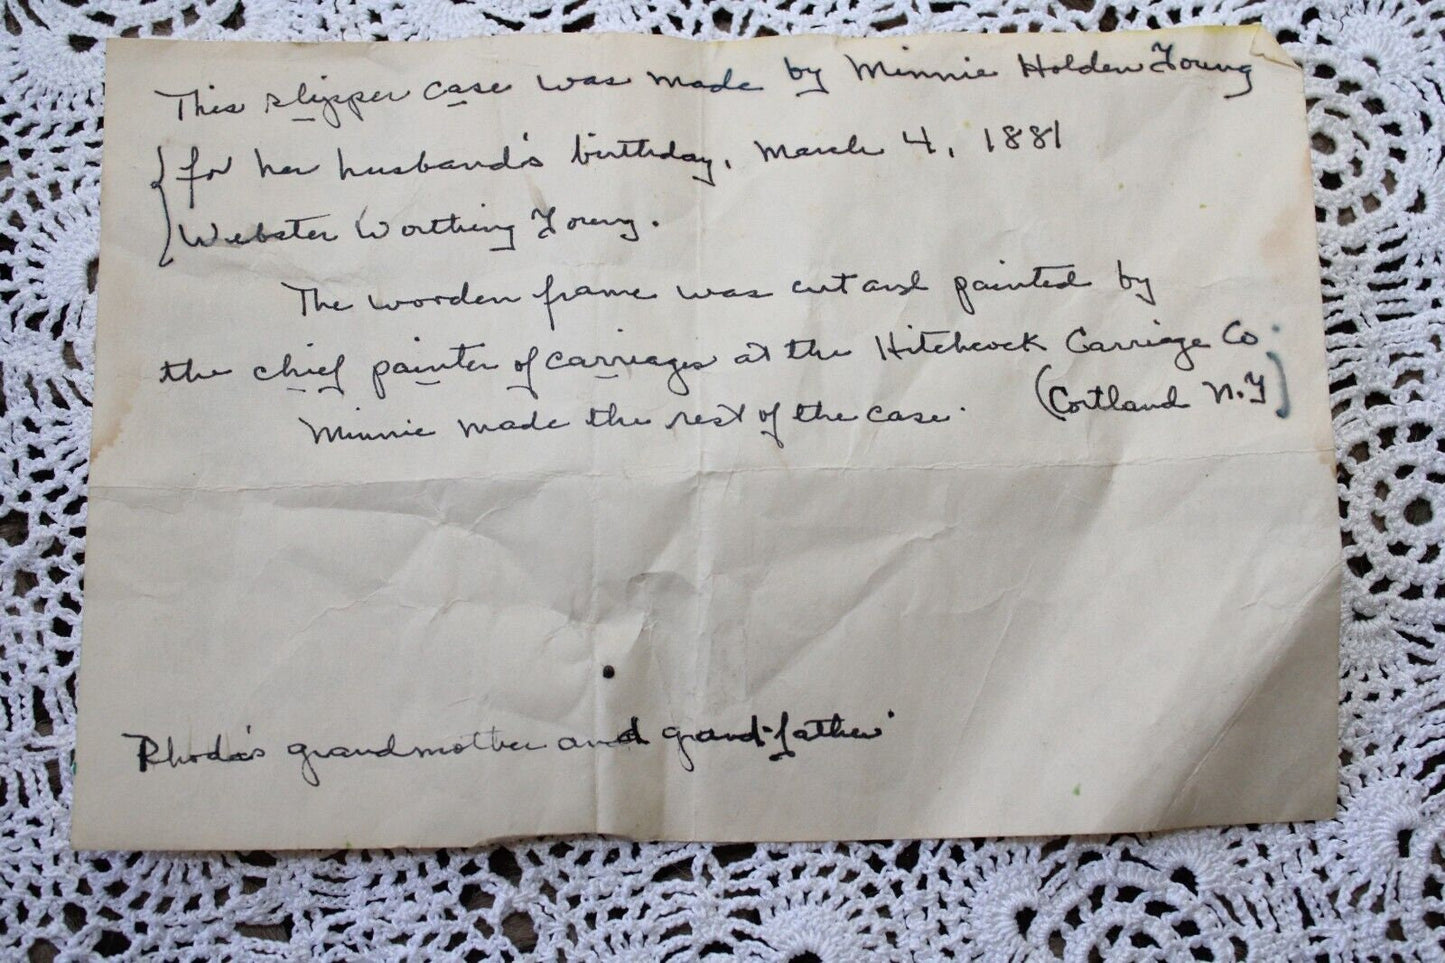 This slipper case was made by Minnie Holden Young
{ for her husband's birthday, March 4, 1881
Webster Worthing Young.
The wooden frame was cut and painted by
the chief painter of carriages at the Hitchcock Carriage Co.
(Cortland N.Y)
Minnie made the rest of the case.
Rhoda's grandmother and grand-father